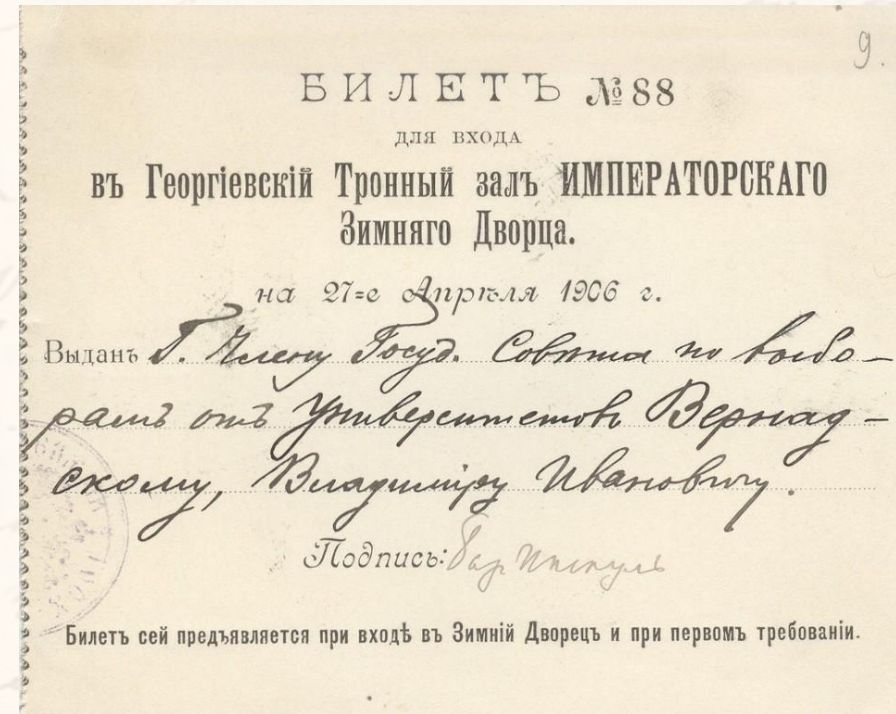 9.
БИЛЕТЪ № 88
для входа
въ Георгіевскій Тронный залъ ИМПЕРАТОРСКАГО
Зимняго Дворца.
на 27=е Апрѣля 1906 г.
Выданъ Г. Члену Госуд. Совѣта по выбо-
рамъ отъ Университетовъ Вернад-
скому, Владиміру Ивановичу.
Подпись: Бар. Икскуль
Билетъ сей предъявляется при входѣ въ Зимній Дворецъ и при первомъ требованіи.